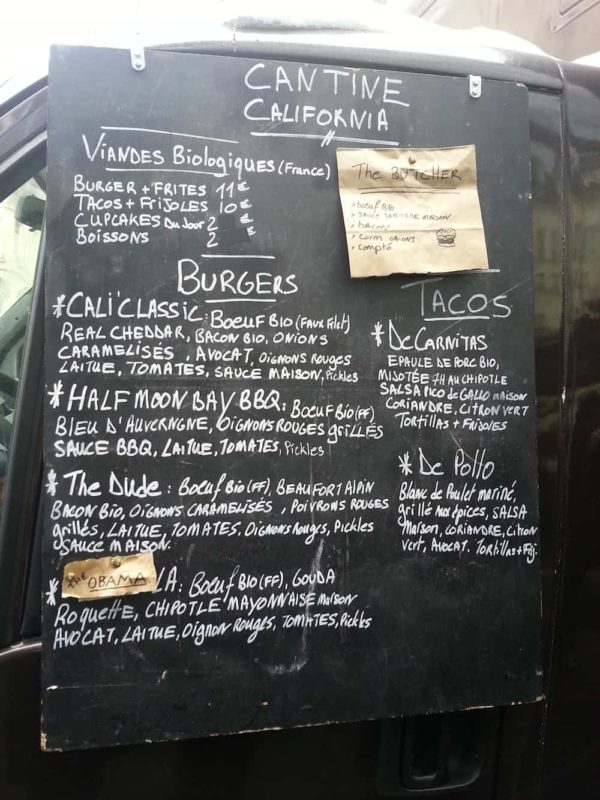 CANTINE
CALIFORNIA
VIANDES BIOLOGIQUES (FRANCE)
BURGER + FRITES 11€
TACOS + FRIJOLES 10€
CUPCAKES DU JOUR 2€
BOISSONS 2€
The BUTCHER
> bœuf BIO
> SAUCE TARTARE MAISON
> bacon
> carm onions
> compté
BURGERS
*CALI'CLASSIC: BOEUF BIO (FAUX FILET)
REAL CHEDDAR, BACON BIO, ONIONS
CARAMELISÉS, AVOCAT, OIGNONS ROUGES
LAITUE, TOMATES, SAUCE MAISON, Pickles
*HALF MOON BAY BBQ: BOEUF BIO (FF)
BLEU D'AUVERNGNE, OIGNONS ROUGES GRILLÉS
SAUCE BBQ, LAITUE, TOMATES, Pickles
*The DUDE: BOEUF BIO (FF), BEAUFORT ALPIN
BACON BIO, OIGNONS CARAMELISÉS, POIVRONS ROUGES
grillés, LAITUE, TOMATES, OIGNONS Rouges, Pickles
SAUCE MAISON
* OBAMA LA: BOEUF BIO (FF), GOUDA
ROQUETTE, CHIPOTLE MAYONNAISE MAISON
AVOCAT, LAITUE, OIGNON ROUGES, TOMATES, Pickles
TACOS
*DE CARNITAS
EPAULE DE PORC BIO,
MIJOTÉE 7H AU CHIPOTLE
SALSA PICO de GALLO MAISON
CORIANDRE, CITRON VERT
TORTILLAS + FRIJOLES
*DE POLLO
Blanc de Poulet mariné,
grillé aux épices, SALSA
MAISON, CORIANDRE, CITRON
VERT, AVOCAT. TORTILLAS + Frij.